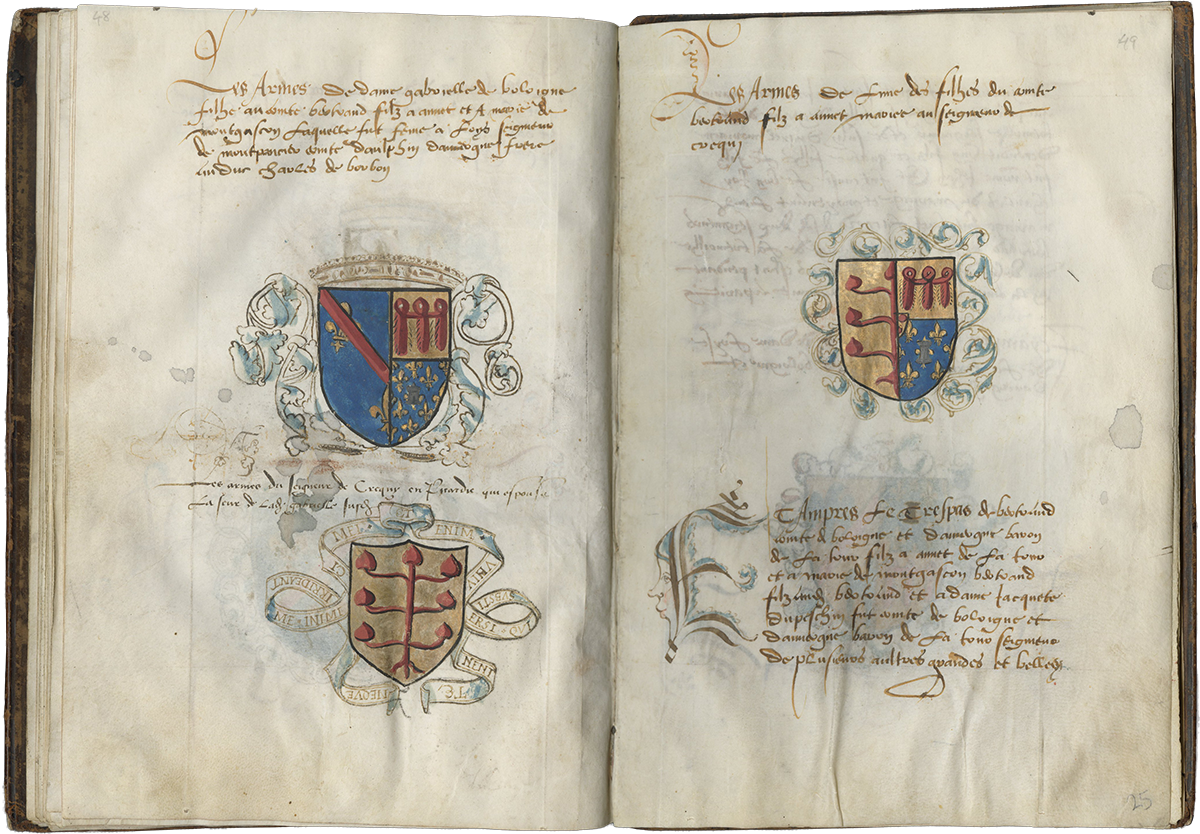 48
Les Armes de dame gabrielle de boloigne
filhe au comte bertrand filz a annet et a marie de
montgascon laquelle fut feme a loys seigneur
de montpencier comte daulphin dauvergne frere
au duc charles de borbon
Les armes du seigneur de Crequy en Picardie qui espousa
La seur de Lad gabrielle
MEI ENIM
VNIV ERSI QVI
SVBSTI NENT
TE
NEQVE
IRRIDEANT
ME INIMI
49
Les Armes de l'une des filhes du comte
bertrand filz a annet mariee au seigneur de
crequi
ETAmpres le Trespas de bertrand
comte de boloigne et dauvergne baron
de la tour filz a annet de la tour
et a marie de montgascon bertrand
filz aud bertrand et a dame Jacquete
dupeschin fut comte de boloigne et
dauvergne baron de la tour seigneur
de plusieurs aultres grandes et belles
25